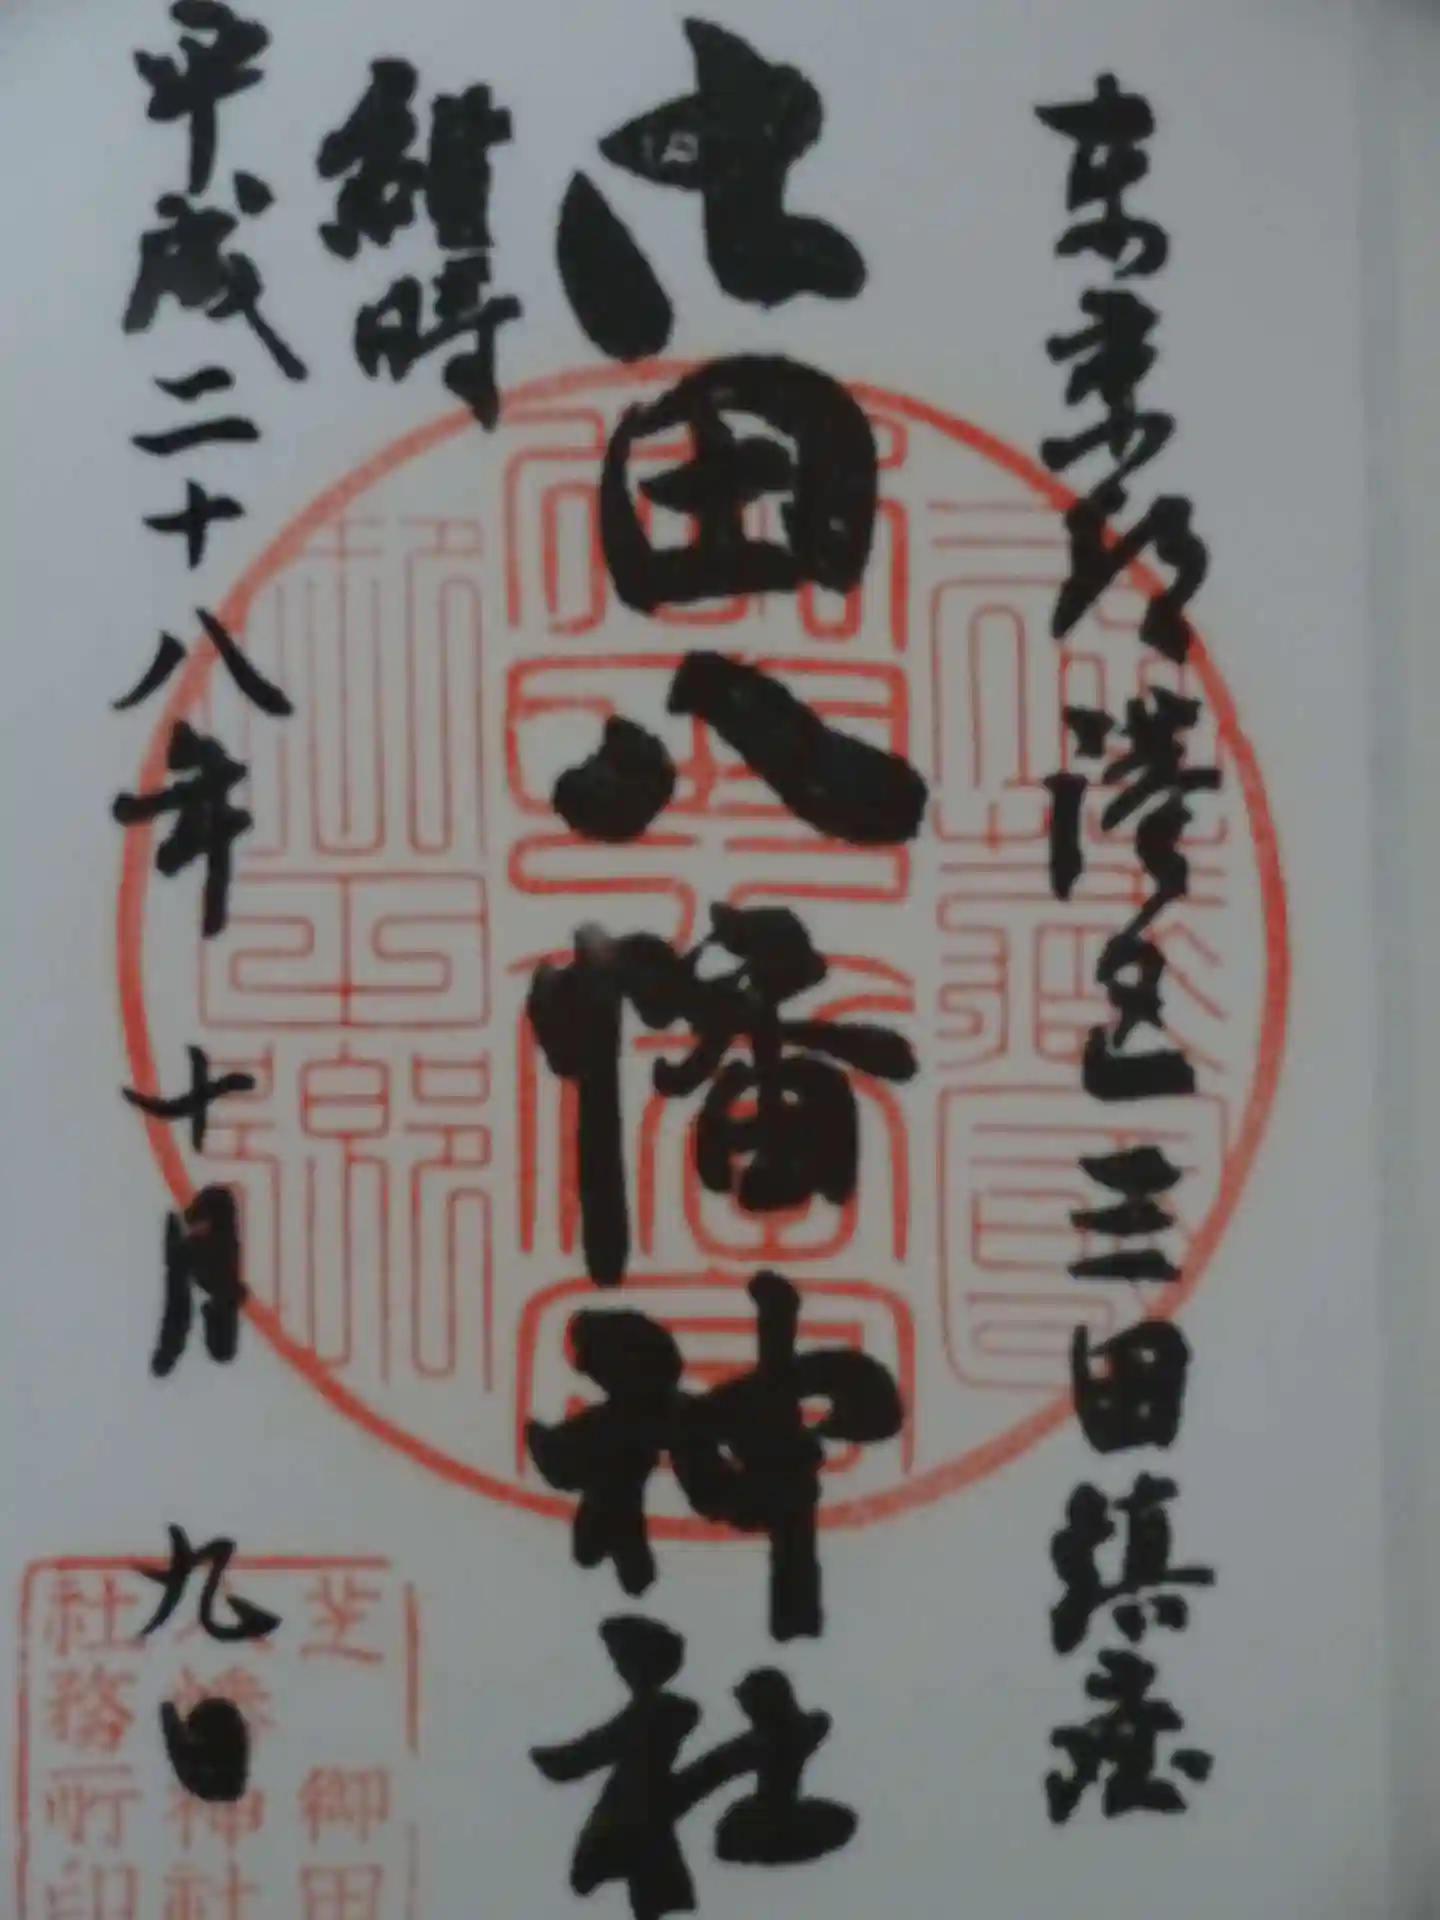 東京都港区三田鎮座
御田八幡神社
維時
平成二十八年十月九日
芝御田
八幡神社
社務所印